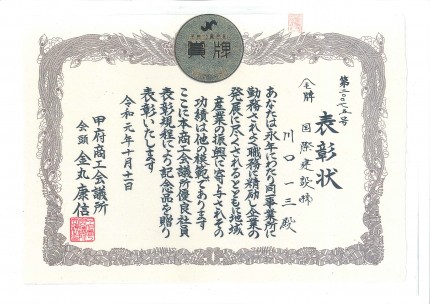 賞牌
第二〇七五号
表彰状
金牌
国際建設㈱
川口一三殿
あなたは永年にわたり同事業所に
勤務されよく職務に精励し企業の
発展に尽くされるとともに地域
産業の振興に寄与されその
功績は他の模範であります
ここに本商工会議所優良社員
表彰規程により記念品を贈り
表彰いたします
令和元年十月十一日
甲府商工会議所
会頭 金丸康信